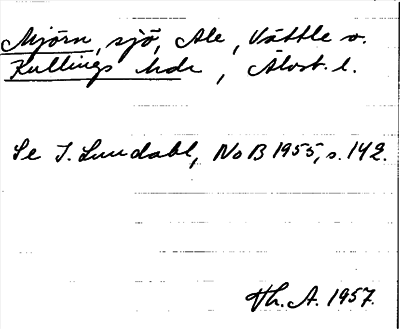 Mjörn, sjö, Ale, Vättle o.
Kullings hdr, Älvsb. l.
Se I. Lundahl, NoB 1955, s. 142.
Th. A. 1957.